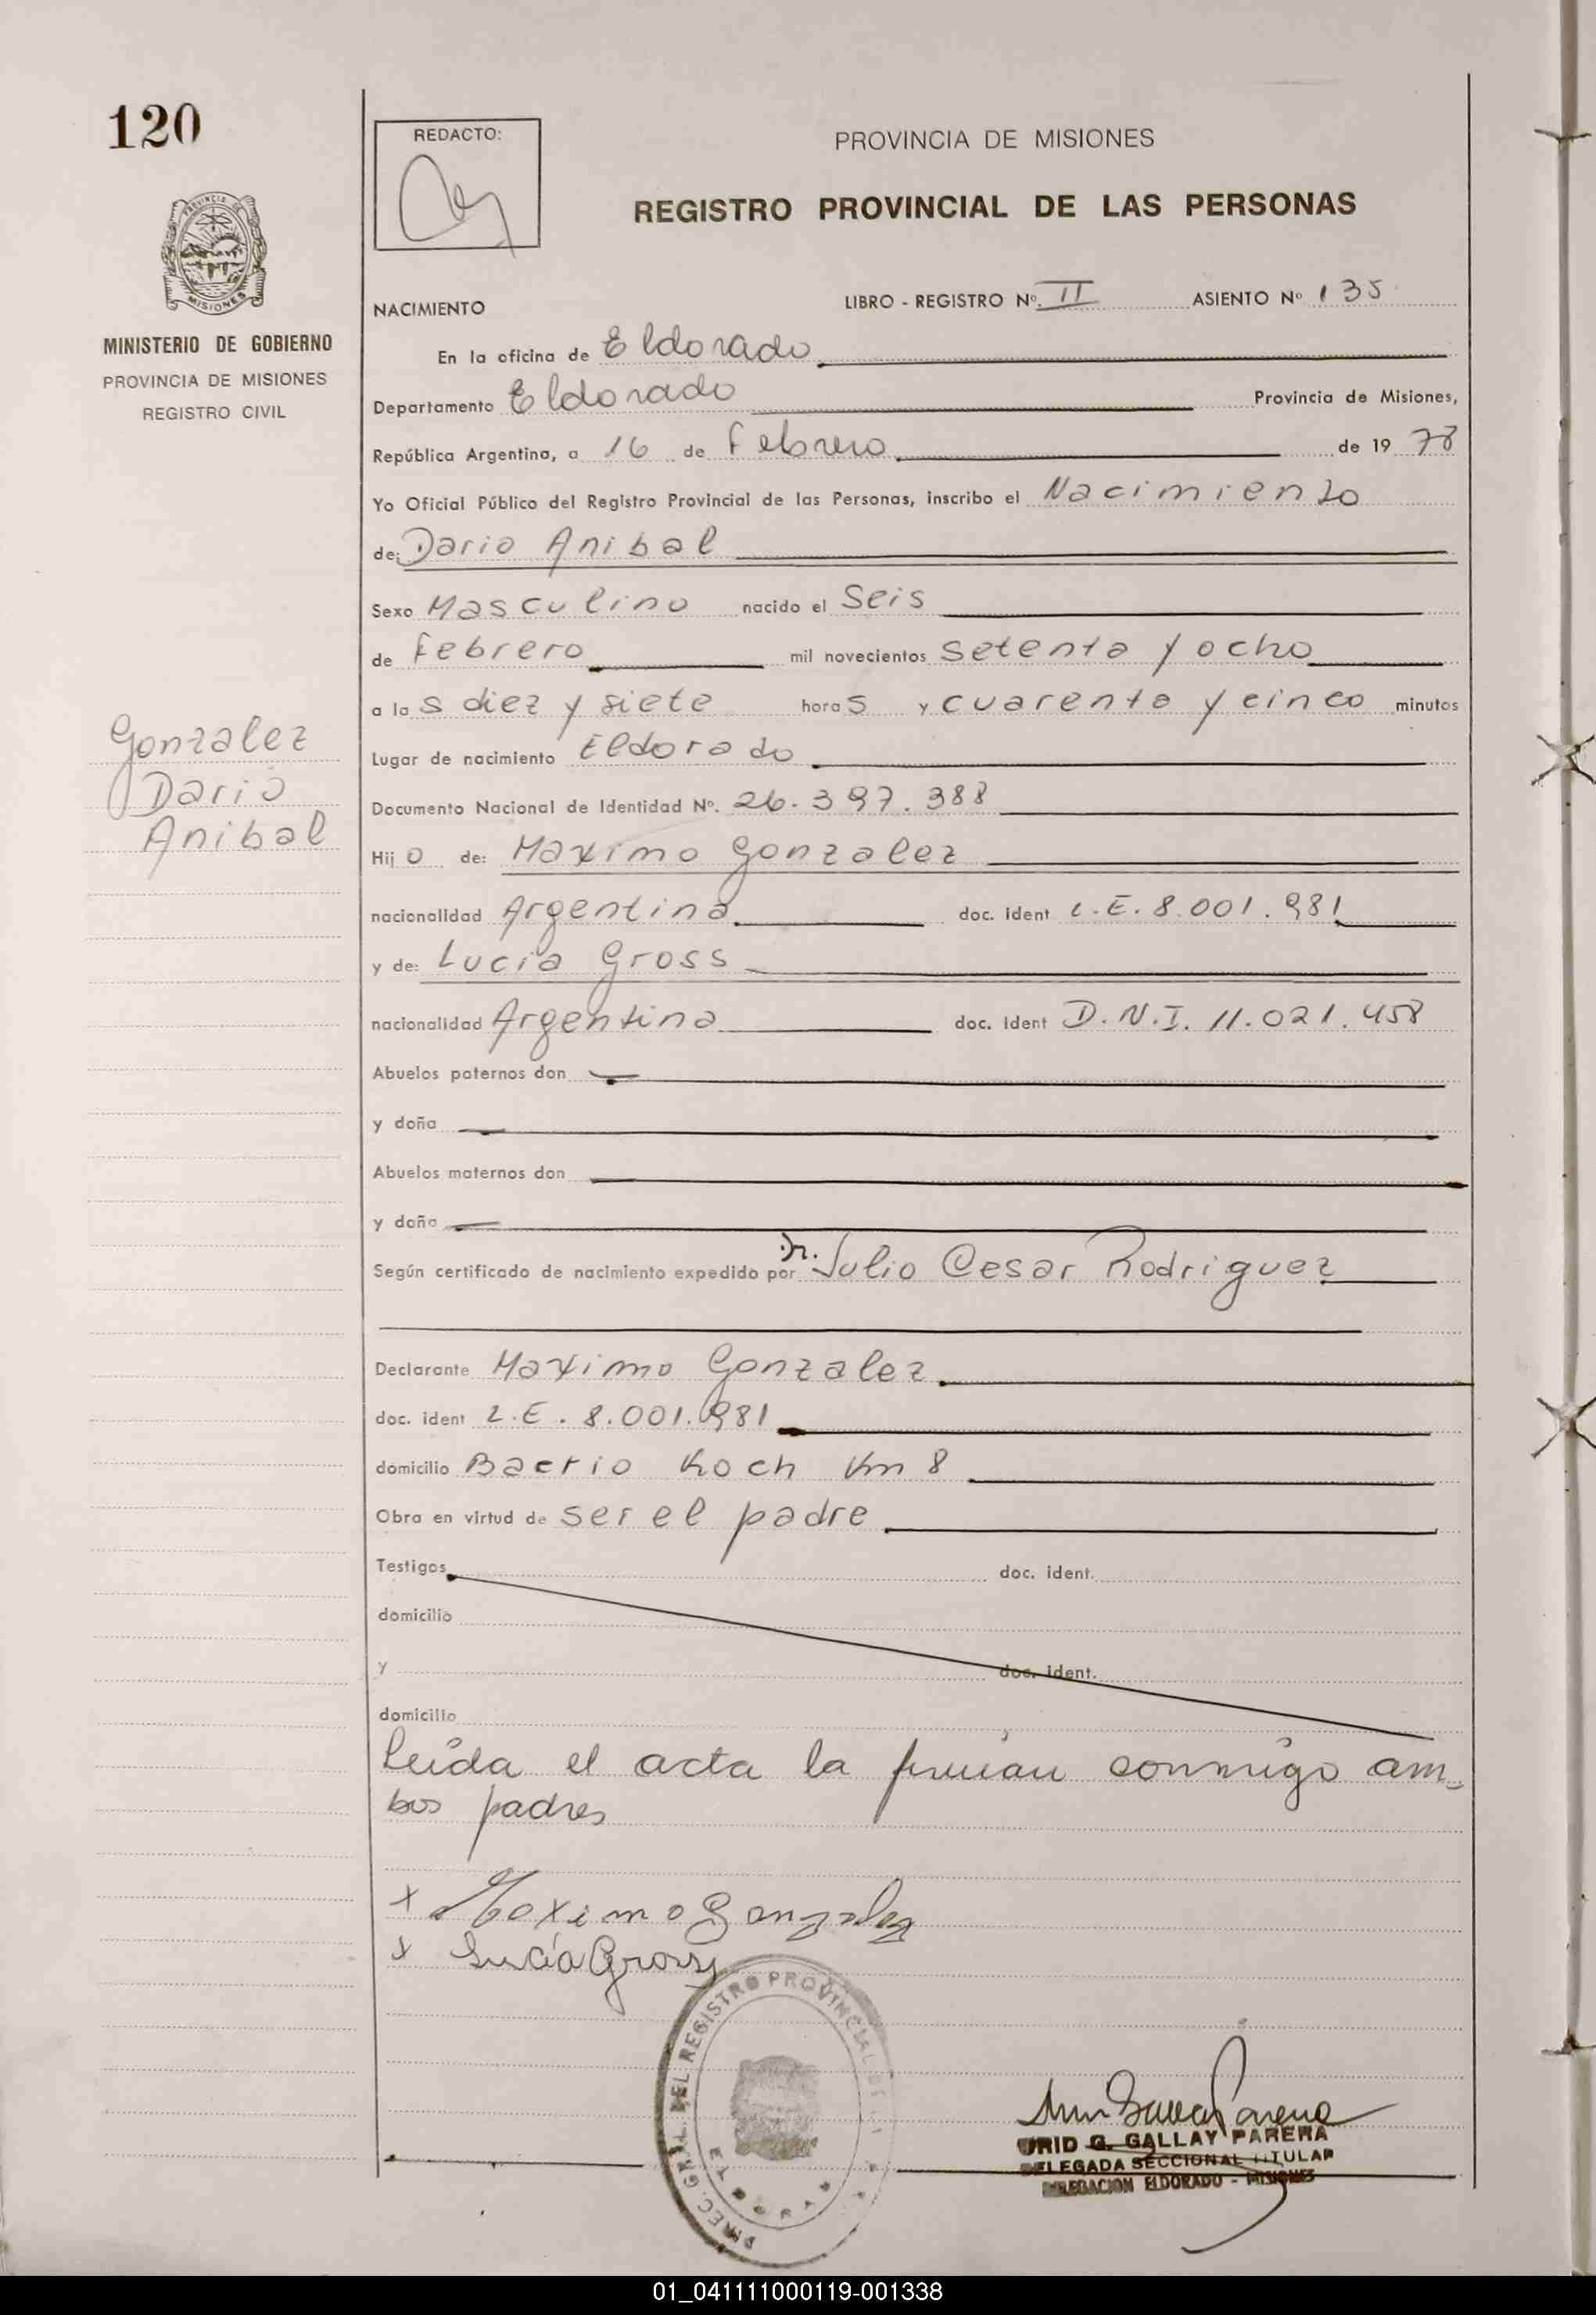 120
REDACTO:
PROVINCIA DE MISIONES
REGISTRO PROVINCIAL DE LAS PERSONAS
PROVINCIA DE
MISIONES
MINISTERIO DE GOBIERNO
PROVINCIA DE MISIONES
REGISTRO CIVIL
NACIMIENTO
LIBRO - REGISTRO Nº. II ASIENTO Nº 135
En la oficina de Eldorado
Departamento Eldorado Provincia de Misiones,
República Argentina, a 16 de Febrero de 19 78
Yo Oficial Público del Registro Provincial de las Personas, inscribo el Nacimiento
de: Dario Anibal
Sexo Masculino nacido el Seis
de Febrero mil novecientos setenta y ocho
a las diez y siete horas y cuarenta y cinco minutos
Gonzalez
Dario
Anibal
Lugar de nacimiento Eldorado
Documento Nacional de Identidad Nº. 26.397.388
Hijo de: Maximo Gonzalez
nacionalidad Argentina doc. ident L.E. 8.001.981
y de: Lucia Gross
nacionalidad Argentina doc. ident D.N.I. 11.021.458
Abuelos paternos don
y doña
Abuelos maternos don
y doña
Según certificado de nacimiento expedido por Dr. Julio Cesar Rodriguez
Declarante Maximo Gonzalez
doc. ident L.E. 8.001.981
domicilio Barrio Koch Km 8
Obra en virtud de ser el padre
Testigos doc. ident.
domicilio
y doc. ident.
domicilio
Leida el acta la firman conmigo am-
bos padres
x Maximo Gonzalez
x Lucía Gross
DIREC. GRAL. DEL REGISTRO PROVINCIAL DE
ELDORADO
G. GALLAY PARERA
DELEGADA SECCIONAL TITULAR
DELEGACION ELDORADO - MISIONES
01_041111000119-001338